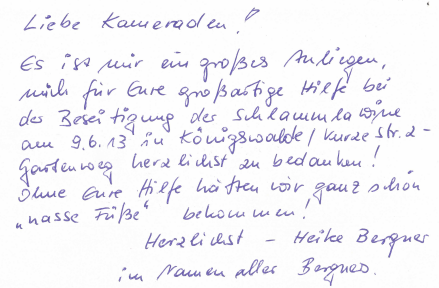 Liebe Kameraden!
Es ist mir ein großes Anliegen,
mich für Eure großartige Hilfe bei
der Beseitigung der Schlammlawine
am 9.6.13 in Königswalde/Kurze Str. 2-
Gartenweg herzlichst zu bedanken!
Ohne Eure Hilfe hätten wir ganz schön
„nasse Füße" bekommen!
Herzlichst - Heike Bergner
im Namen aller Bergners.